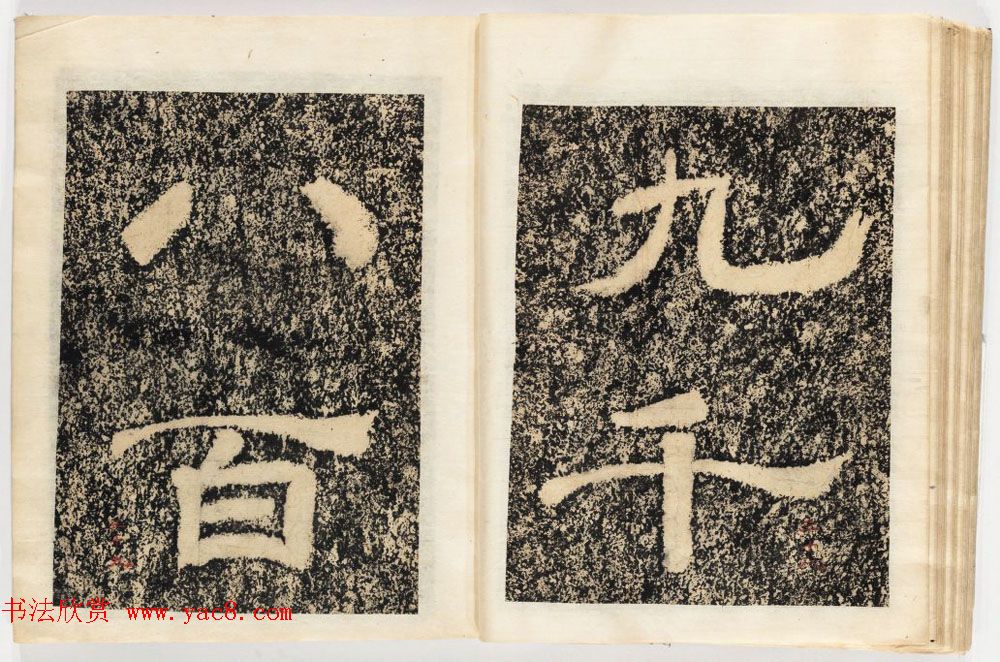 九千
八百
书法欣赏 www.yac8.com